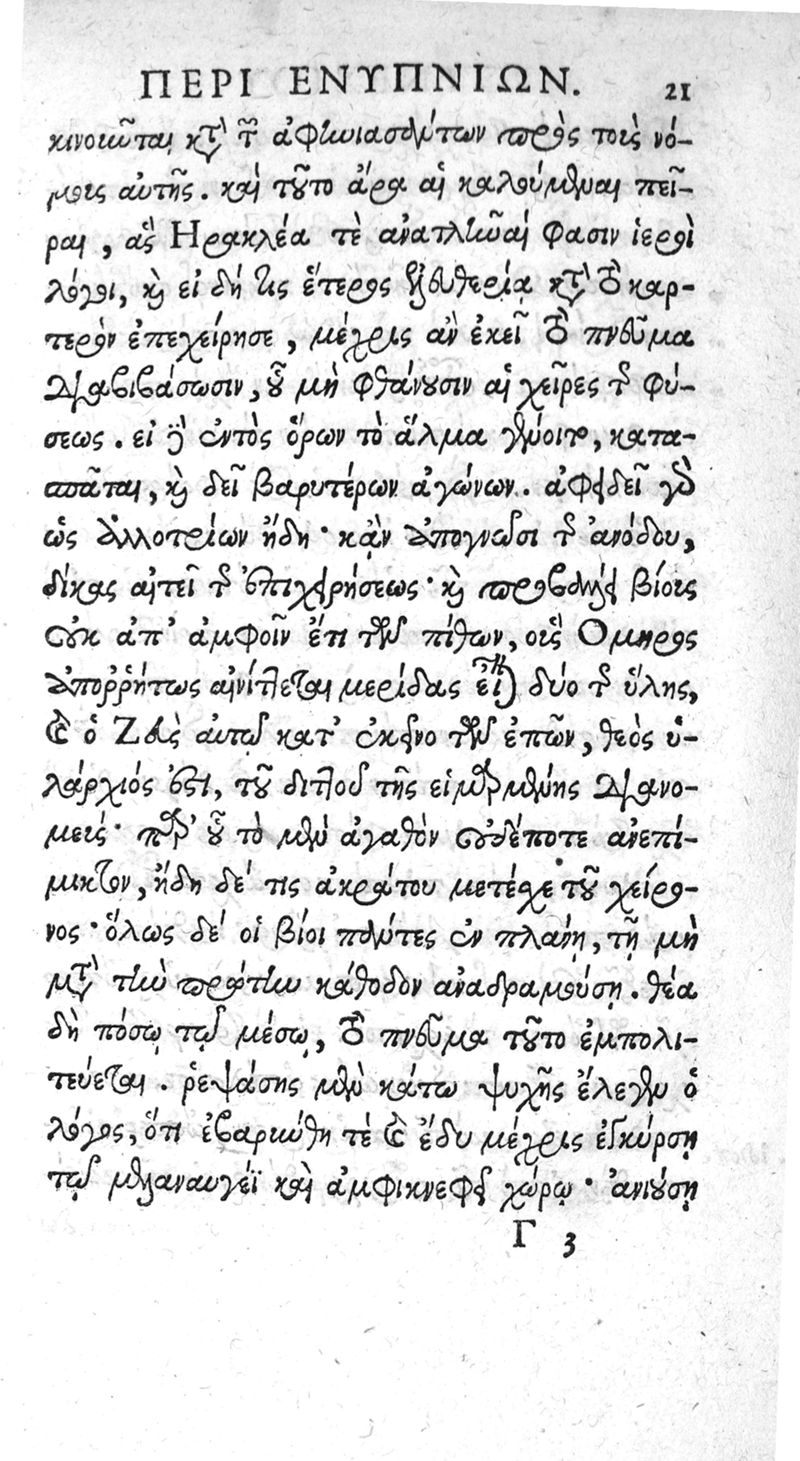 ΠΕΡΙ ΕΝΥΠΝΙΩΝ. 21
κινοιῶται κατὰ τῶν ἀφηνιασάντων πρὸς τοὺς νό-
μοις αὐτῆς. καὶ τοῦτο ἄρα αἱ καλούμεναι πεῖ-
ραι, ἃς Ηρακλέα τὲ ἀνατλῆναί φασιν ἱεροὶ
λόγοι, καὶ εἰ δή τις ἕτερος ἐλευθερίᾳ κατὰ τὸ καρ-
τερὸν ἐπεχείρησε, μέχρις ἂν ἐκεῖ τὸ πνεῦμα
διαβιβάσωσιν, οὗ μὴ φθάνουσιν αἱ χεῖρες τῆς φύ-
σεως. εἰ δὲ ἐντὸς ὅρων τὸ ἅλμα γένοιτο, κατα-
σπᾶται, καὶ δεῖ βαρυτέρων ἀγώνων. ἀφειδεῖ γὰρ
ὡς ἀλλοτρίων ἤδη· κἂν ἀπογνῶσι τῆς ἀνόδου,
δίκας αἰτεῖ τῆς ἐπιχειρήσεως· καὶ προβαλεῖ βίους
οὐκ ἀπ' ἀμφοῖν ἔτι τῶν πίθων, οἷς Ομηρος
ἀπορρήτως αἰνίττεται μερίδας εἶναι δύο τῆς ὕλης,
καὶ ὁ Ζεὺς αὐτῷ κατ' ἐκεῖνο τῶν ἐπῶν, θεὸς ὑ-
λάρχιός ἐστι, τοῦ διττοῦ τῆς εἱμαρμένης διανο-
μεύς· παρ' οὗ τὸ μὲν ἀγαθὸν οὐδέποτε ἀνεπί-
μικτον, ἤδη δέ τις ἀκράτου μετέσχε τοῦ χείρο-
νος· ὅλως δὲ οἱ βίοι πάντες ἐν πλάνῃ, τῇ μὴ
μετὰ τὴν πρώτην κάθοδον ἀναδραμούσῃ. θέα
δὴ πόσῳ τῷ μέσῳ, τὸ πνεῦμα τοῦτο ἐμπολι-
τεύεται. ῥεψάσης μὲν κάτω ψυχῆς ἔλεγεν ὁ
λόγος, ὅτι ἐβαρύνθη τὲ καὶ ἔδυ μέχρις ἐγκύρσῃ
τῷ μελαναυγέϊ καὶ ἀμφικνεφεῖ χώρῳ· ἀνιούσῃ
Γ 3